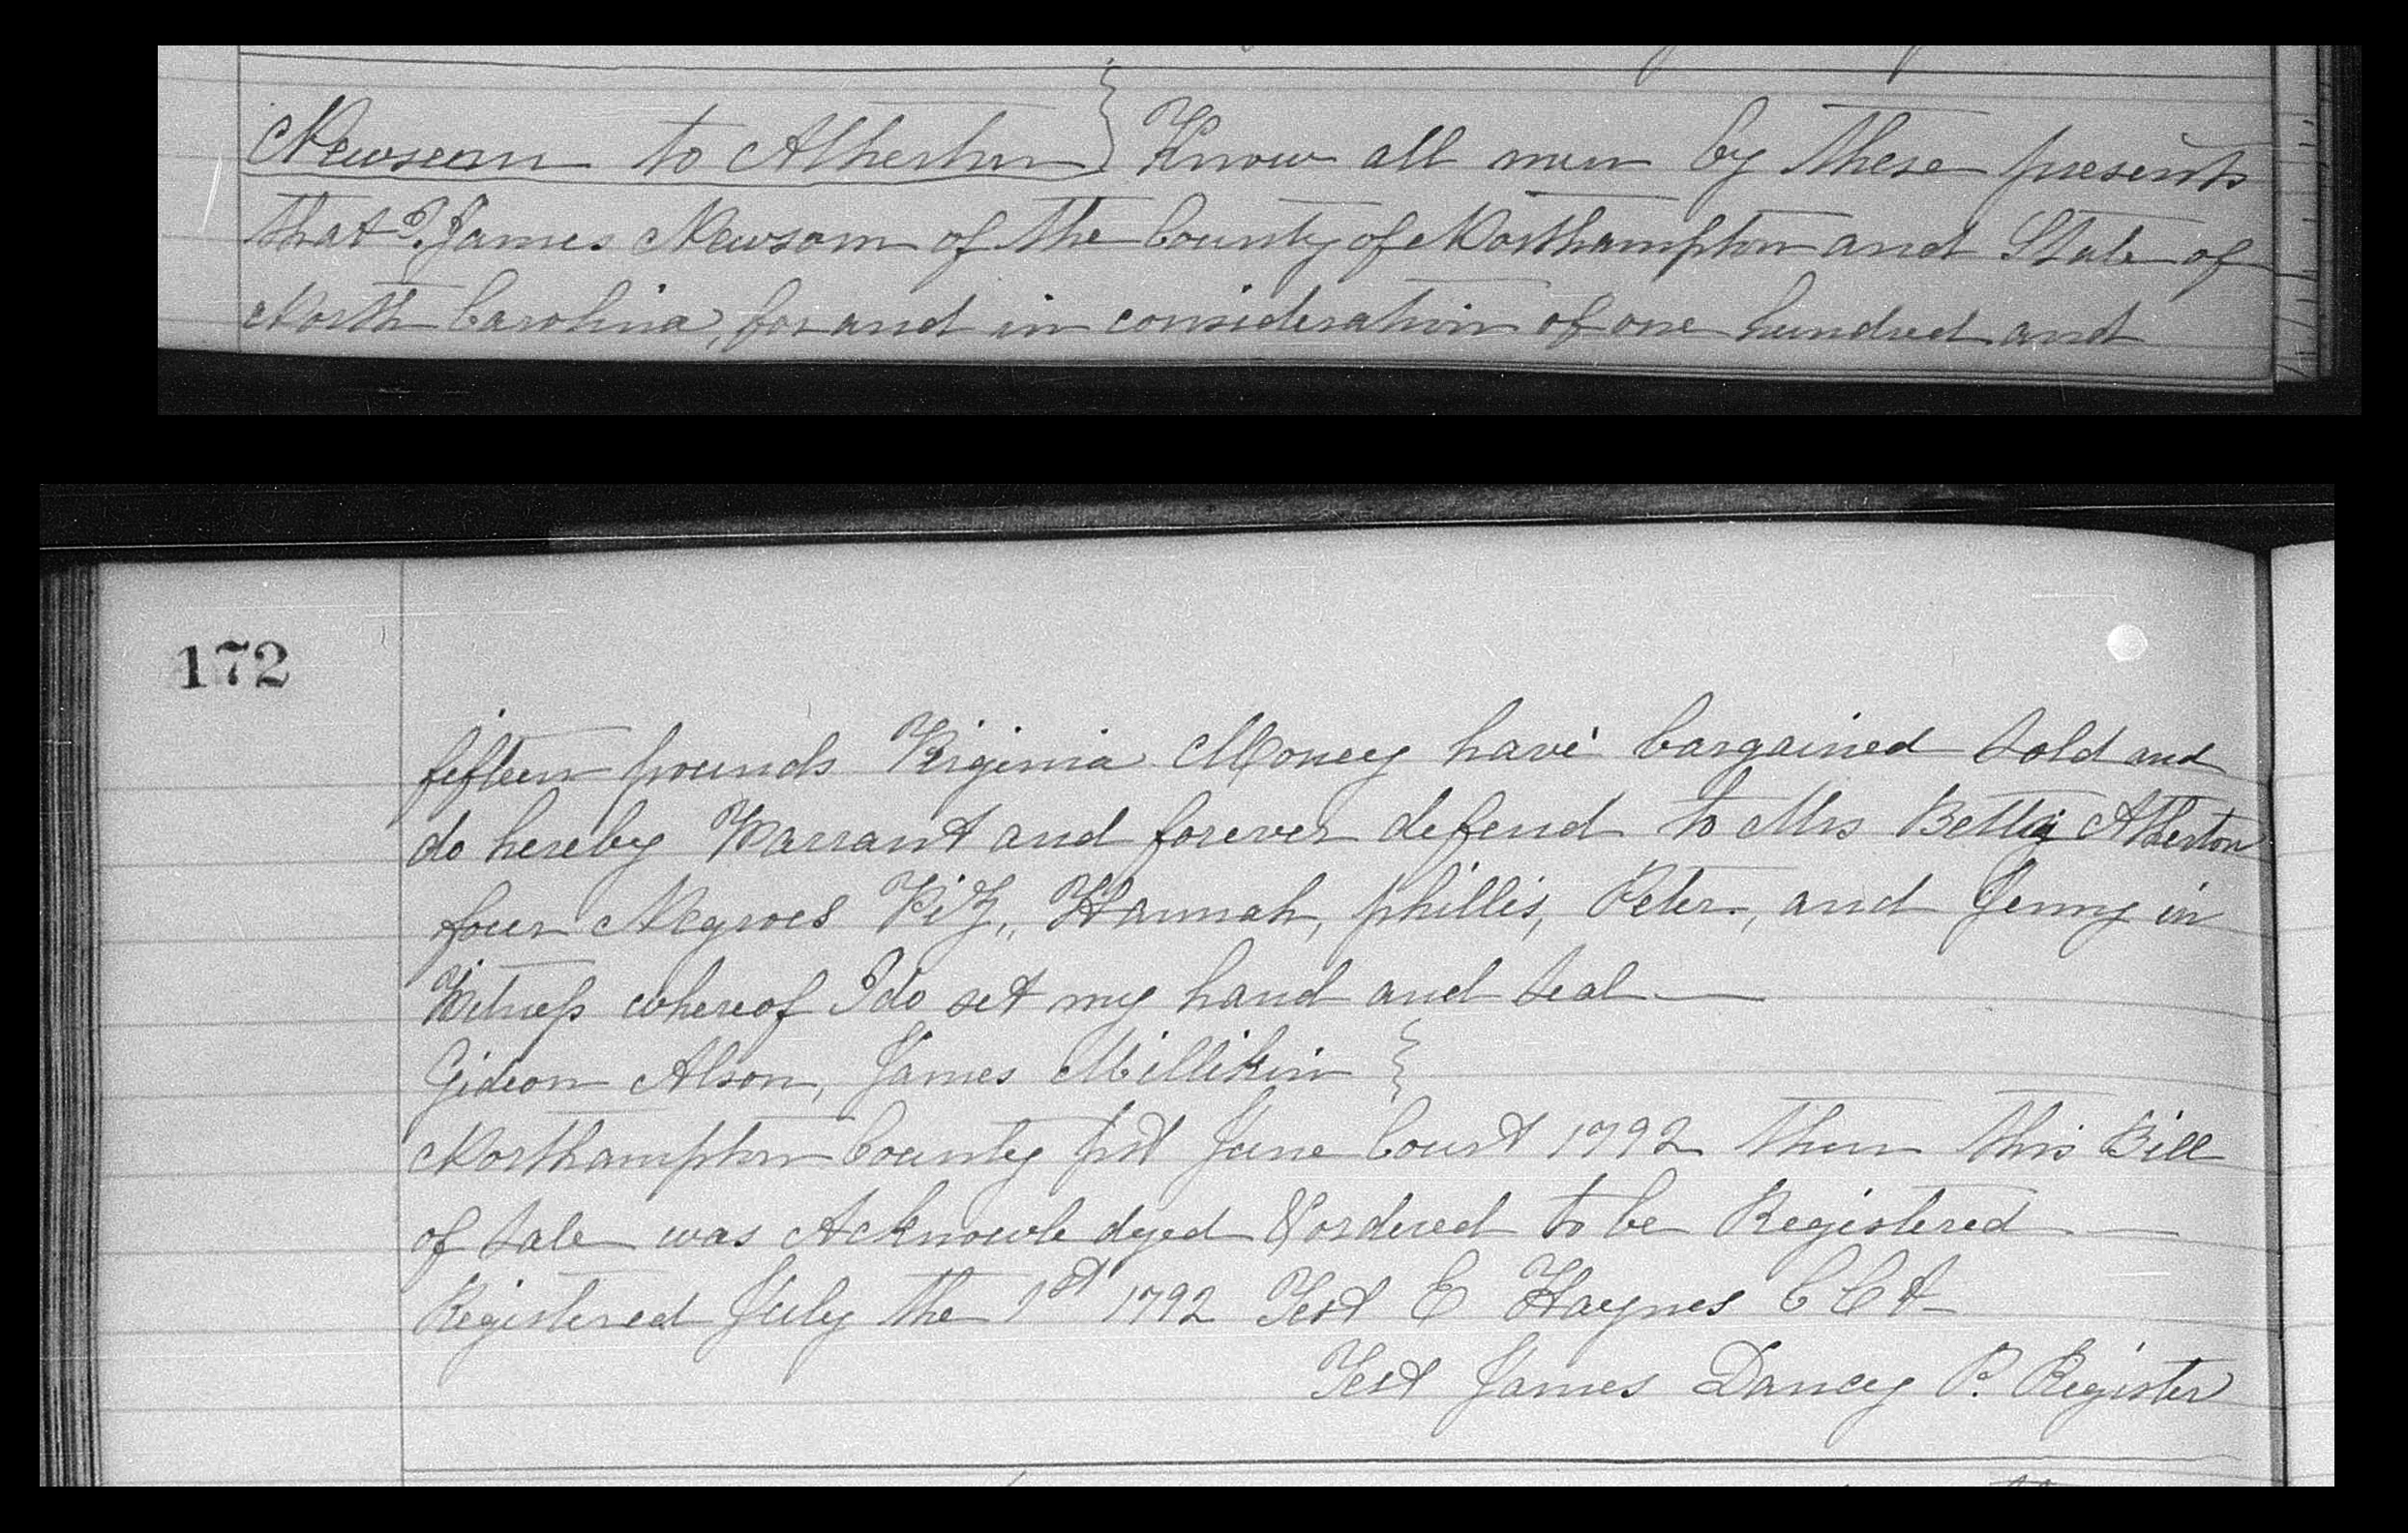 Newseom to Atherton } Know all men by these presents
that I, James Newsom of the County of Northampton and State of
North Carolina, for and in consideration of one hundred and
172
fifteen pounds Virginia Money have bargained sold and
do hereby Warrant and forever defend to Mrs Betty Atherton
four Negroes Viz,, Hannah, phillis, Peter, and Jenny in
Witness whereof I do set my hand and seal —
Gideon Alson, James Millikin }
Northampton County pst June Court 1792 then this Bill
of sale was Acknowledged & ordered to be Registered —
Registered July the 1st 1792 Test E Haynes C C A
Test James Dancey P. Register